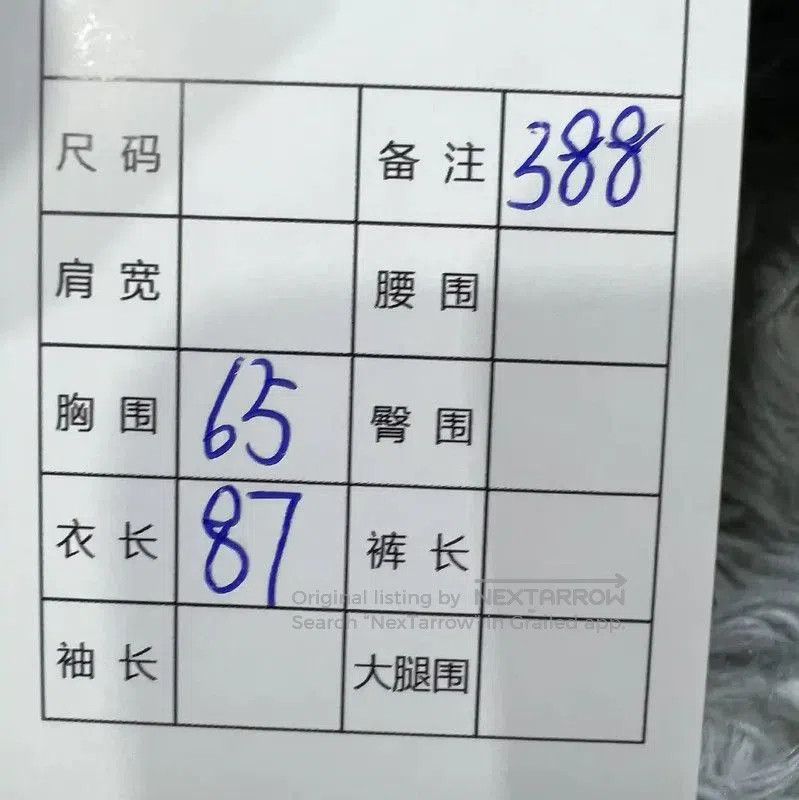 尺码 备注 388
肩宽 腰围
胸围 65 臀围
衣长 87 裤长
Original listing by NEXTARROW
Search "NexTarrow" in Grailed app.
袖长 大腿围